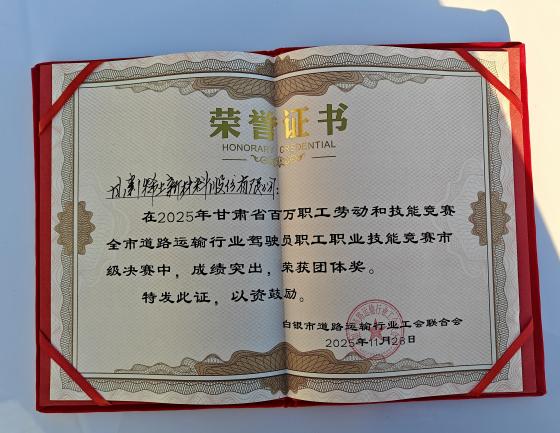 荣誉证书
HONORARY CREDENTIAL
甘肃稀土新材料股份有限公司：
在2025年甘肃省百万职工劳动和技能竞赛
全市道路运输行业驾驶员职工职业技能竞赛市
级决赛中，成绩突出，荣获团体奖。
特发此证，以资鼓励。
白银市道路运输行业工会联合会
2025年11月28日